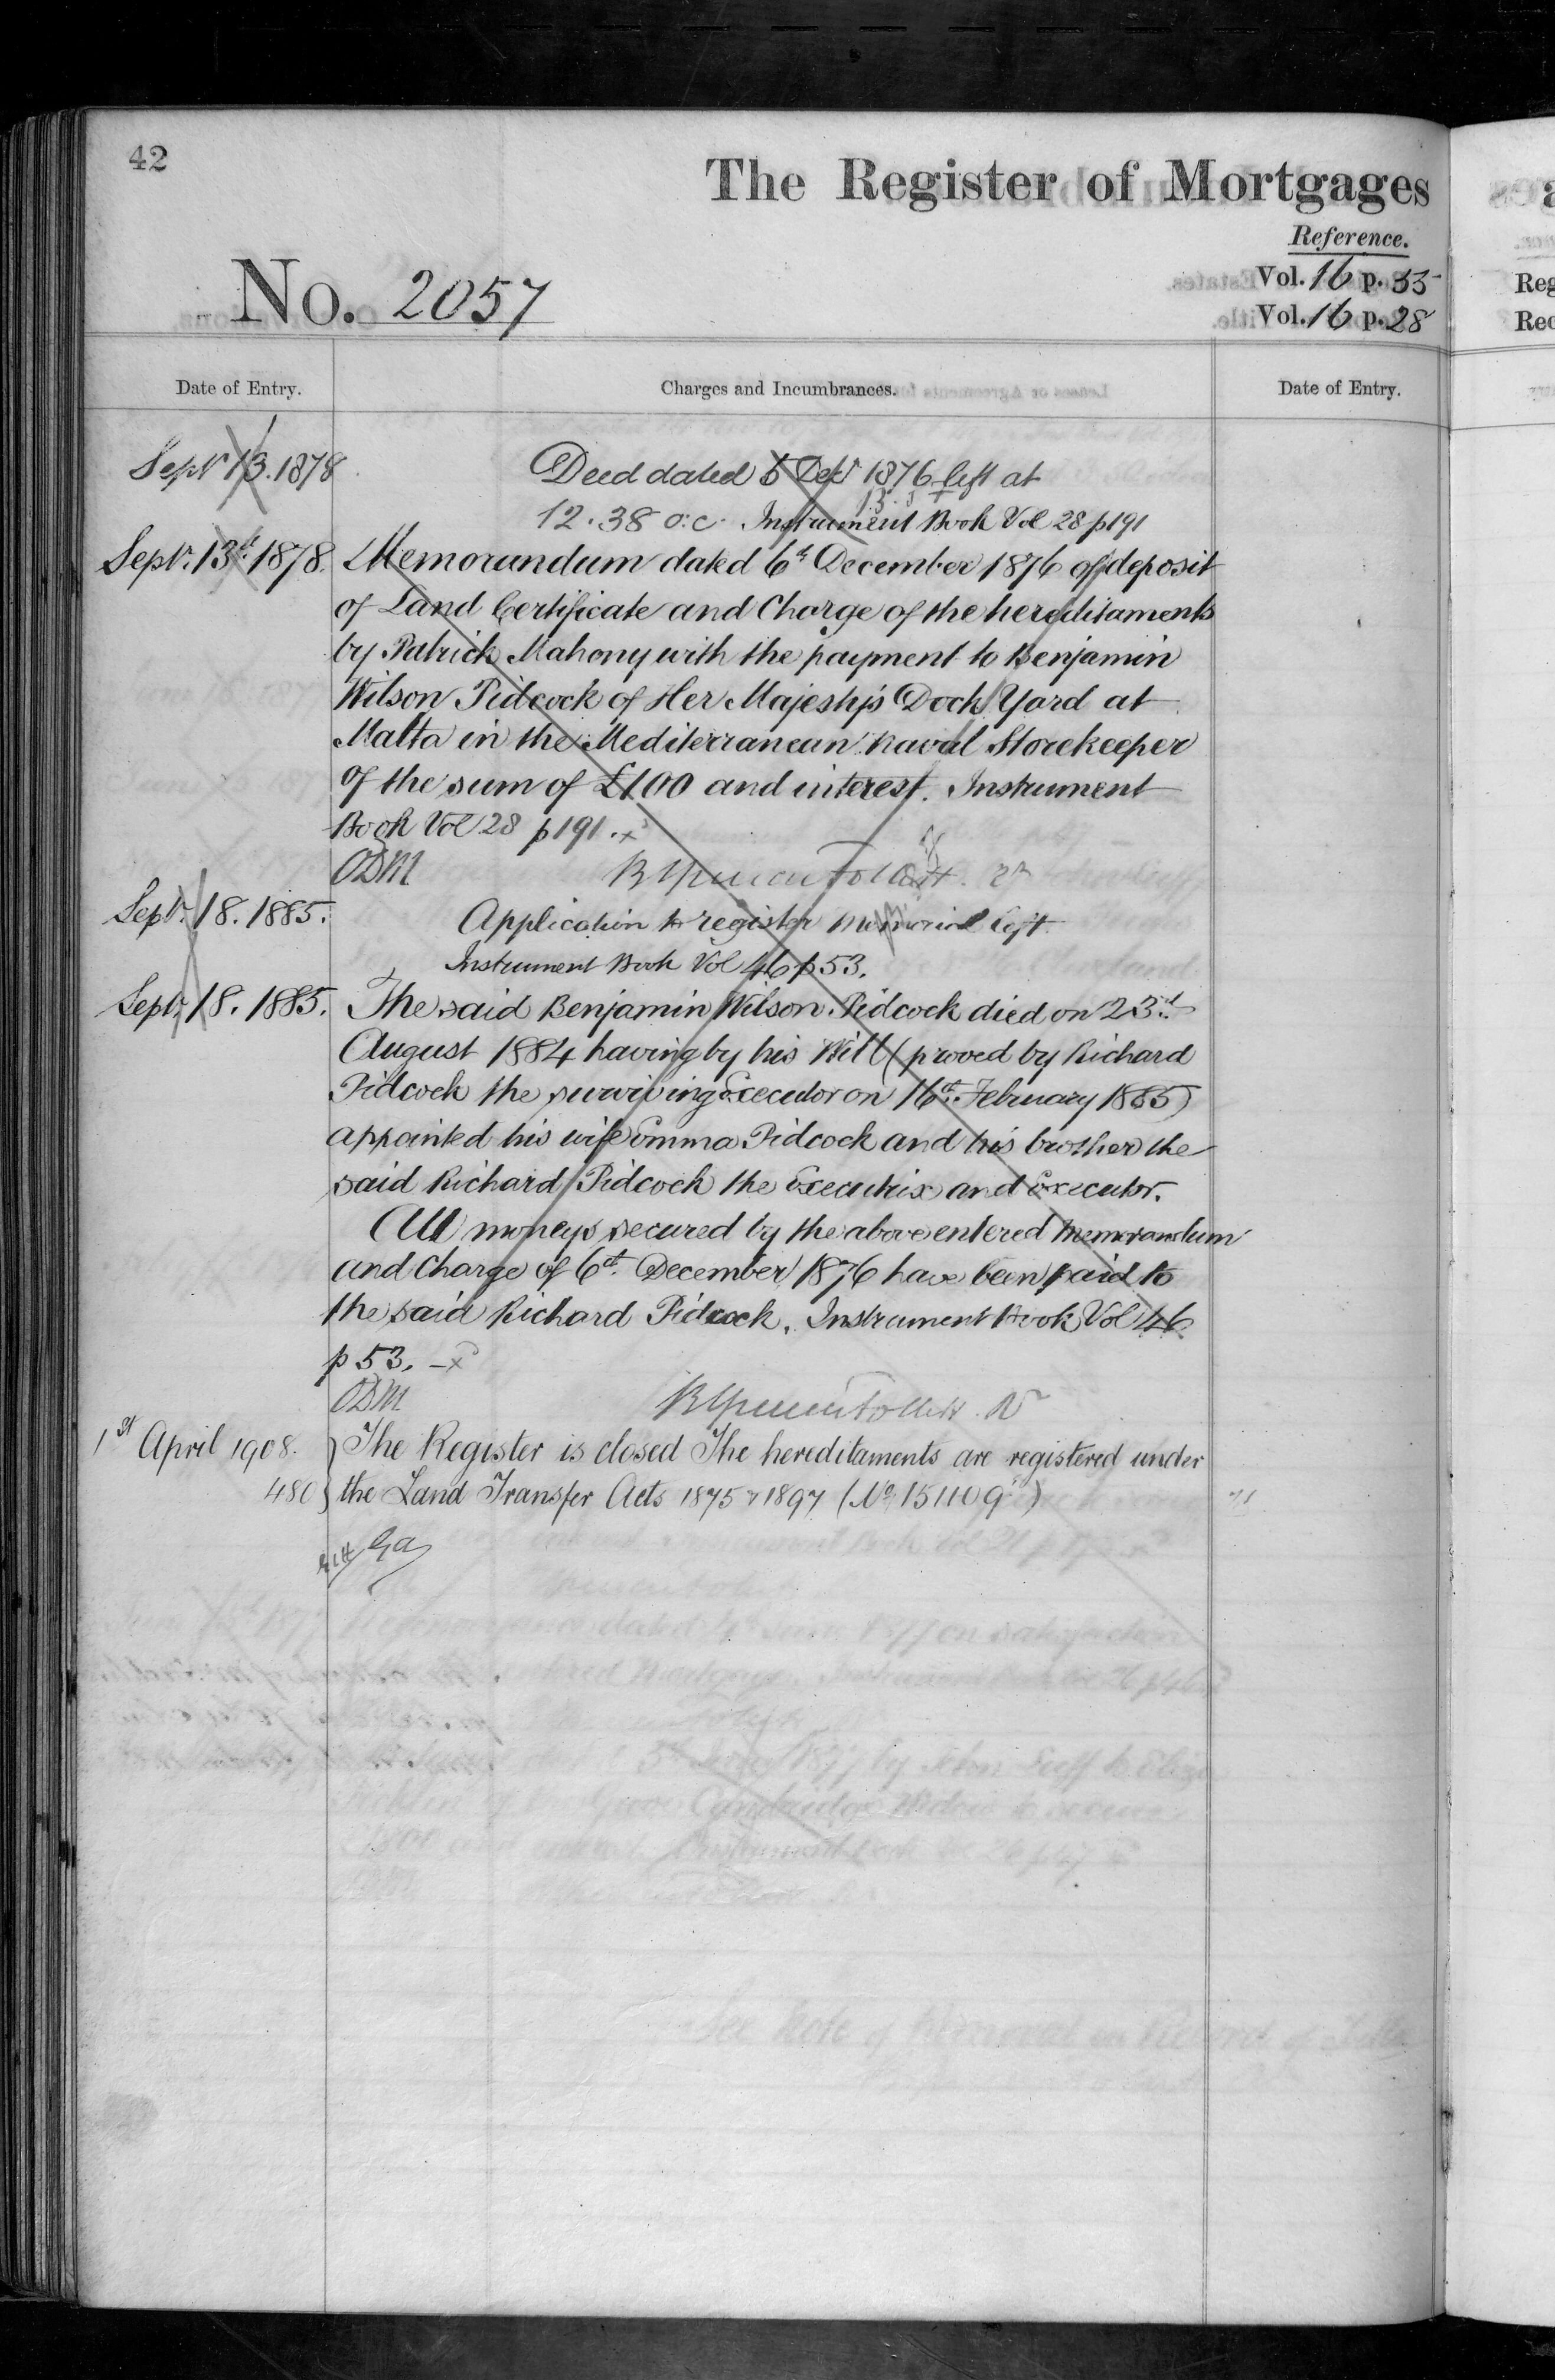 42
The Register of Mortgages
Reference.
No. 2057
Vol. 16 p. 35
Vol. 16 p. 28
Date of Entry.
Charges and Incumbrances.
Date of Entry.
Septr 13. 1878
Deed dated 5 Decr 1876 left at
12.38 o:c. Instrument Book Vol 28 p191
Septr. 13th 1878.
Memorandum dated 6th December 1876 of deposit
of Land Certificate and Charge of the hereditaments
by Patrick Mahony with the payment to Benjamin
Wilson Pidcock of Her Majesty's Dock Yard at
Malta in the Mediterranean Naval Storekeeper
of the sum of £100 and interest. Instrument
Book Vol 28 p191. x
ODM
Septr. 18. 1885.
Application to register Memorial left
Instrument Book Vol 46 p 53.
Septr. 18. 1885.
The said Benjamin Wilson Pidcock died on 23rd
August 1884 having by his Will (proved by Richard
Pidcock the surviving Executor on 16th February 1885)
appointed his wife Emma Pidcock and his brother the
said Richard Pidcock the Executrix and Executor.
All moneys secured by the above entered Memorandum
and Charge of 6th December 1876 have been paid to
the said Richard Pidcock. Instrument Book Vol 46
p 53. – x
ODM
1st April 1908.
The Register is closed The hereditaments are registered under
480
the Land Transfer Acts 1875 & 1897 (No. 151109)